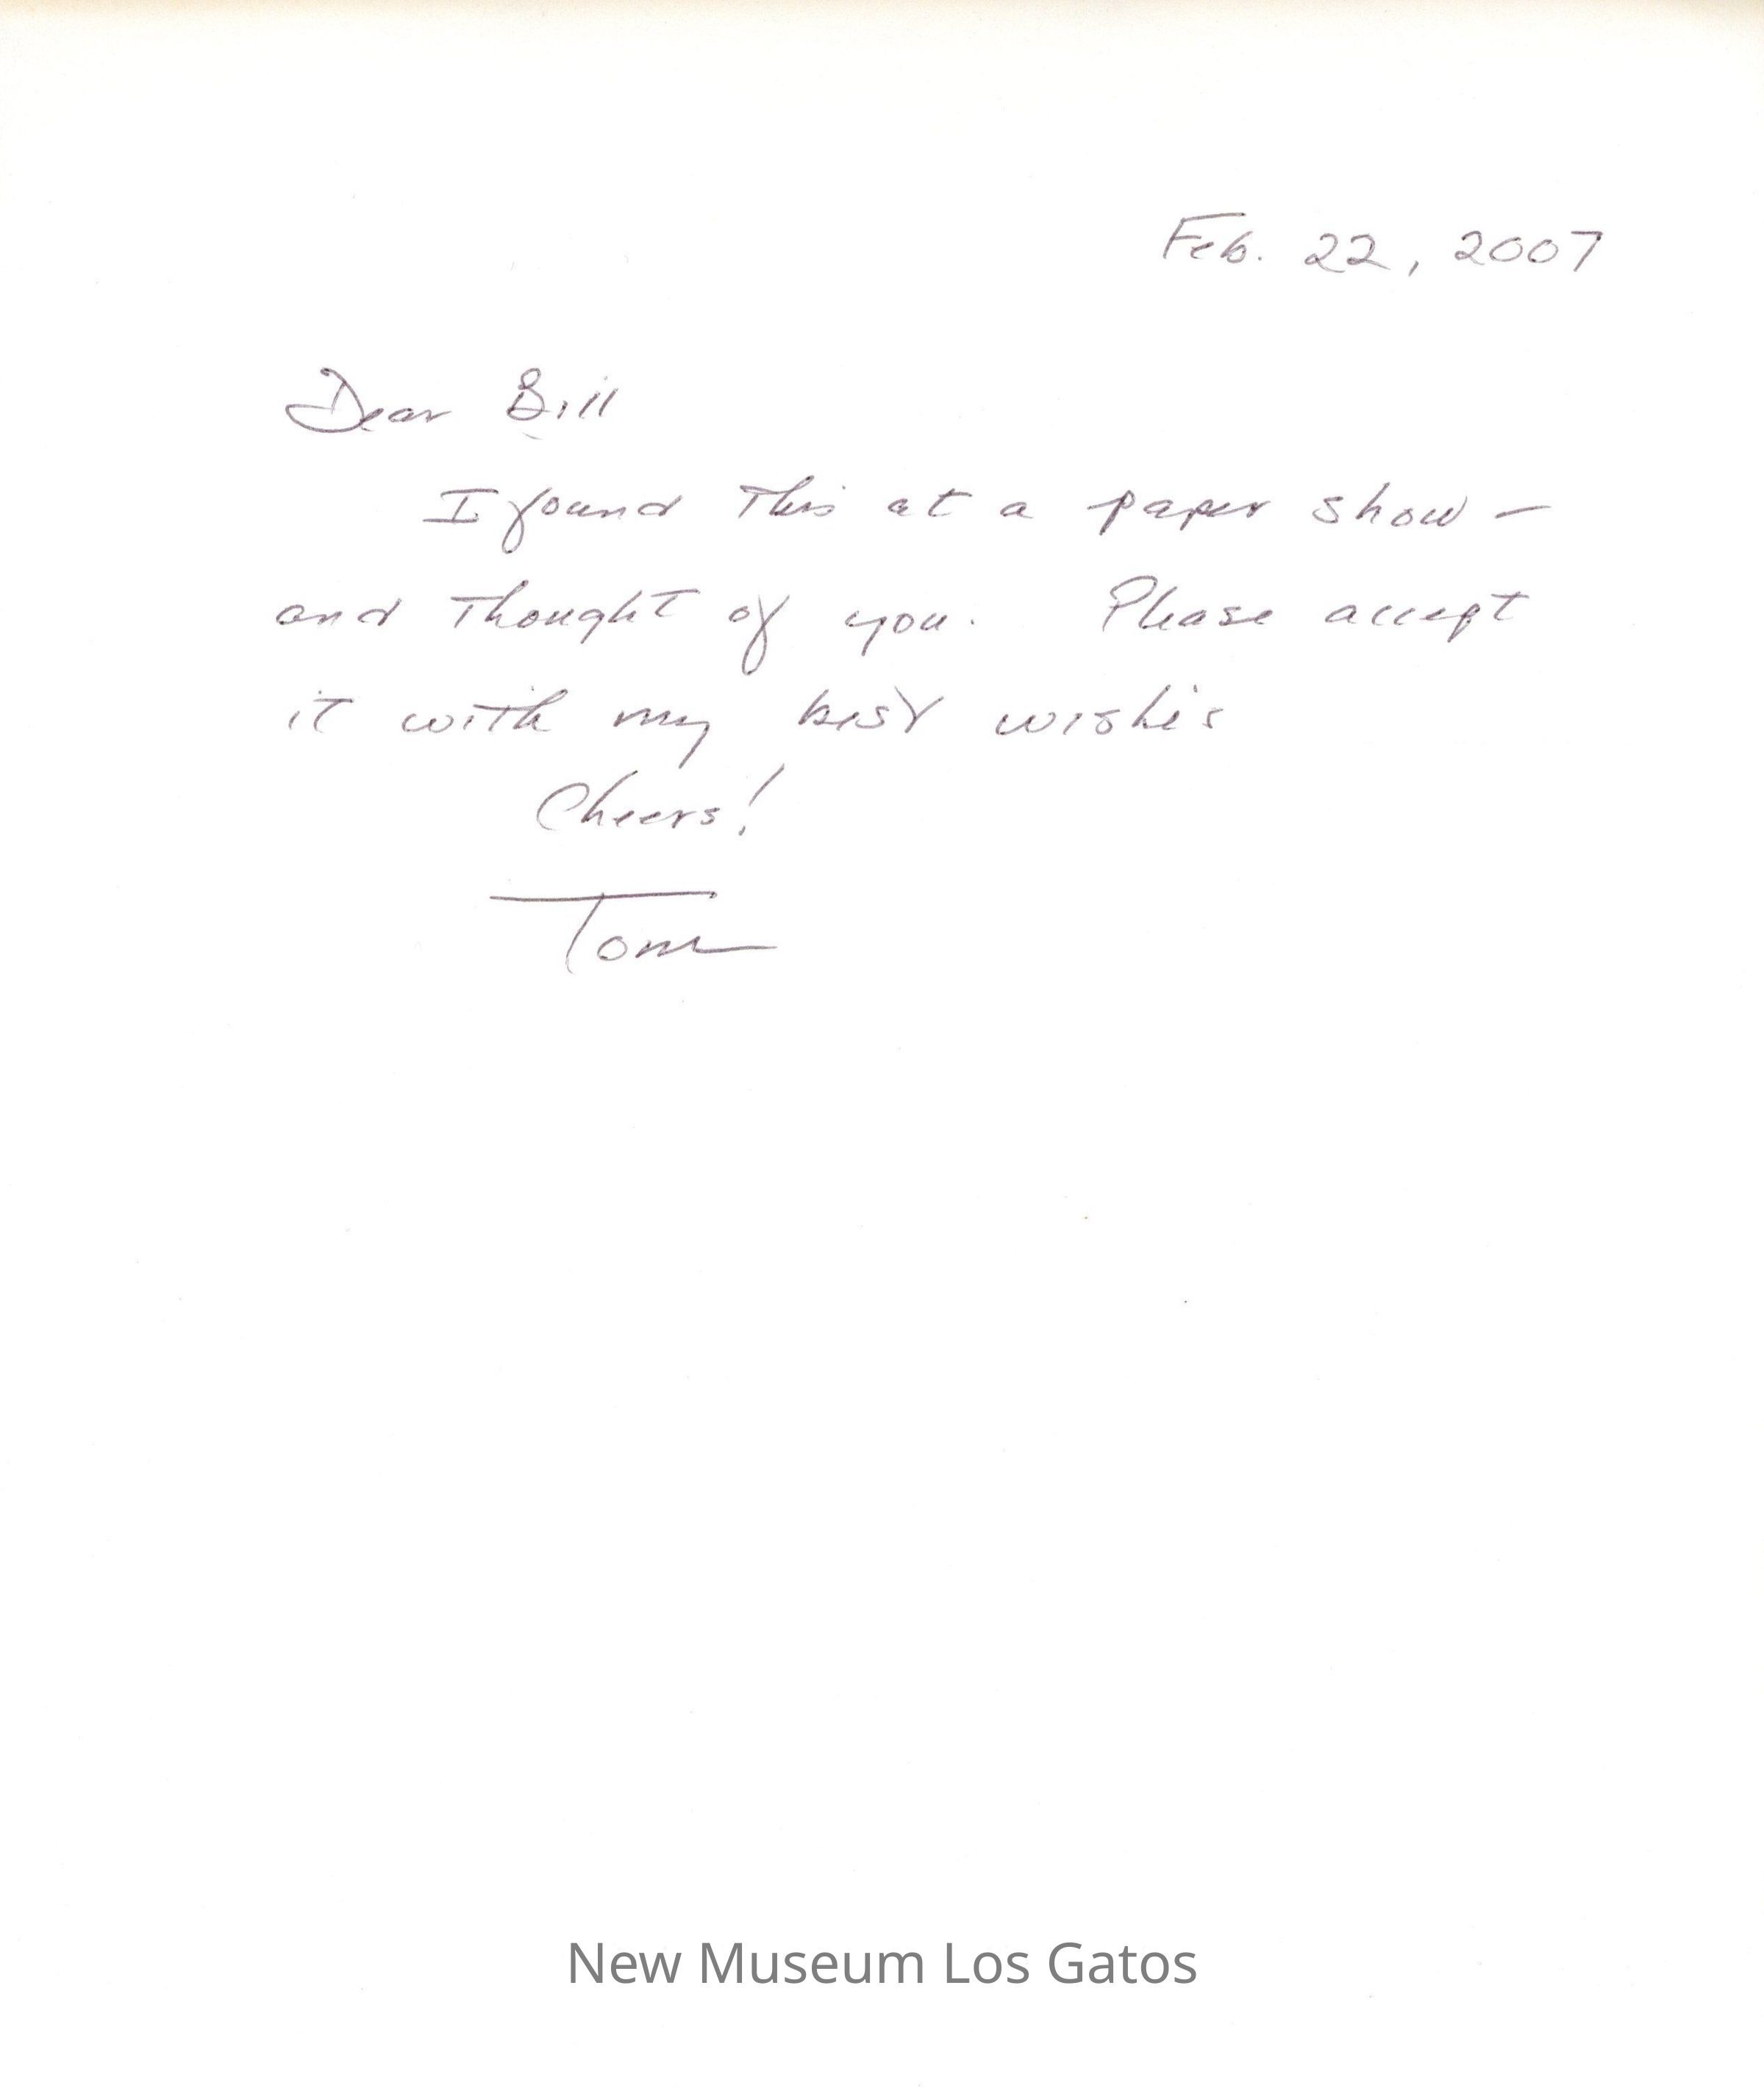 Feb. 22, 2007
Dear Bill
I found this at a paper show –
and thought of you. Please accept
it with my best wishes
Cheers!
Tom
New Museum Los Gatos